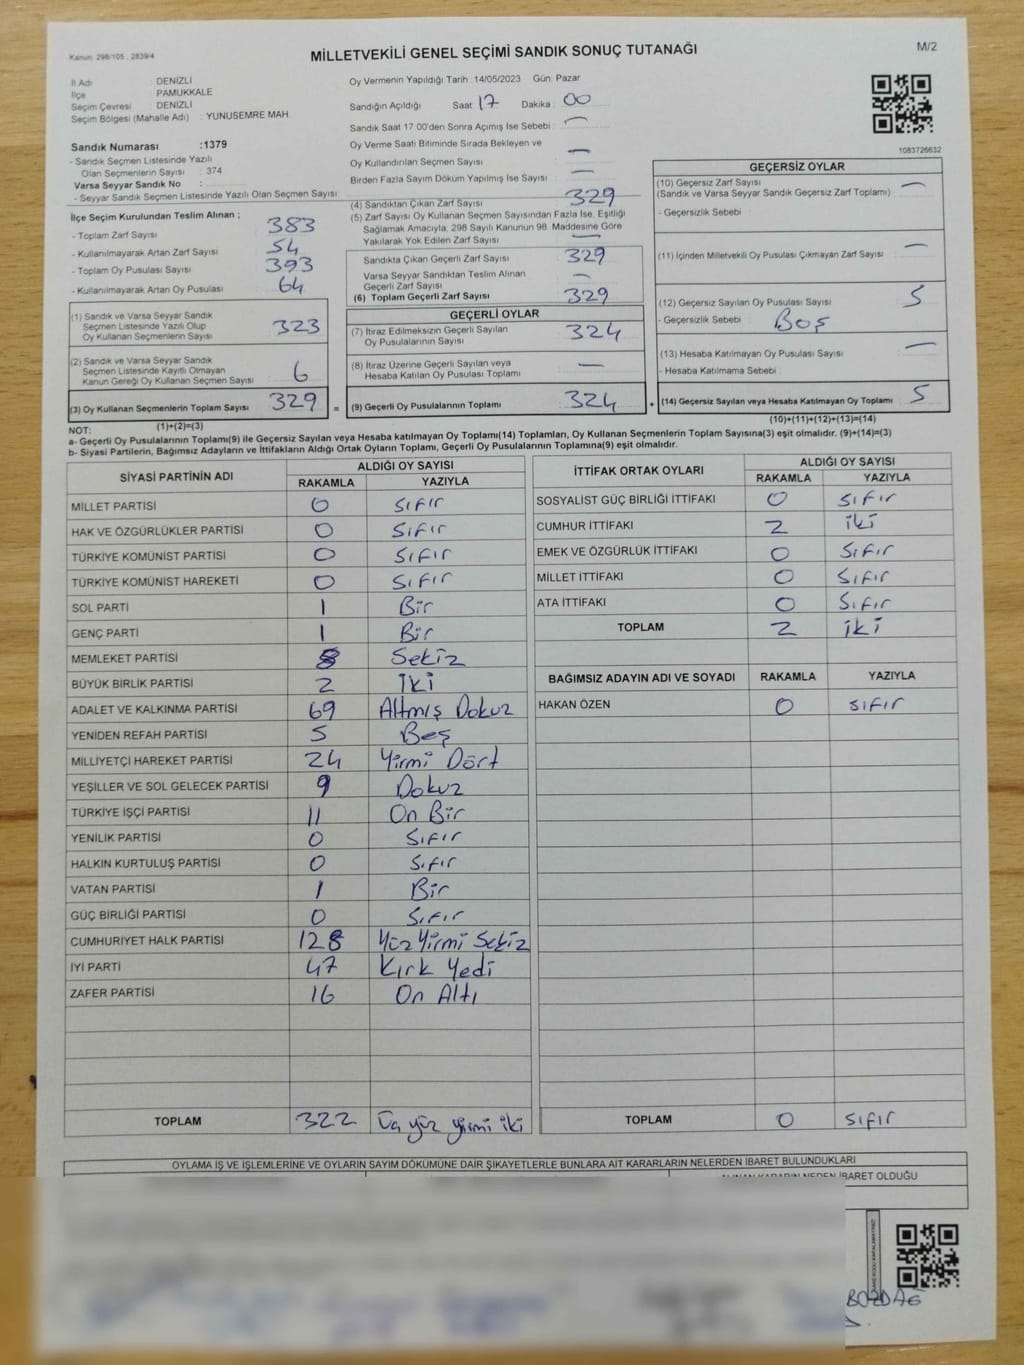 Kanun: 298/105 , 2839/4
MİLLETVEKİLİ GENEL SEÇİMİ SANDIK SONUÇ TUTANAĞI
M/2
İl Adı DENİZLİ
İlçe PAMUKKALE
Seçim Çevresi DENİZLİ
Seçim Bölgesi (Mahalle Adı) : YUNUSEMRE MAH.
Sandık Numarası :1379
- Sandık Seçmen Listesinde Yazılı
Olan Seçmenlerin Sayısı : 374
Varsa Seyyar Sandık No :
- Seyyar Sandık Seçmen Listesinde Yazılı Olan Seçmen Sayısı :
Oy Vermenin Yapıldığı Tarih :14/05/2023 Gün: Pazar
Sandığın Açıldığı Saat 17 Dakika : 00
Sandık Saat 17:00'den Sonra Açımış İse Sebebi : —
Oy Verme Saati Bitiminde Sırada Bekleyen ve
Oy Kullandırılan Seçmen Sayısı : —
Birden Fazla Sayım Döküm Yapılmış İse Sayısı : —
1083726632
İlçe Seçim Kurulundan Teslim Alınan ;
- Toplam Zarf Sayısı : 383
- Kullanılmayarak Artan Zarf Sayısı : 54
- Toplam Oy Pusulası Sayısı : 393
- Kullanılmayarak Artan Oy Pusulası : 64
(1) Sandık ve Varsa Seyyar Sandık
Seçmen Listesinde Yazılı Olup
Oy Kullanan Seçmenlerin Sayısı : 323
(2) Sandık ve Varsa Seyyar Sandık
Seçmen Listesinde Kayıtlı Olmayan
Kanun Gereği Oy Kullanan Seçmen Sayısı : 6
(3) Oy Kullanan Seçmenlerin Toplam Sayısı 329 =
(1)+(2)=(3)
(4) Sandıktan Çıkan Zarf Sayısı : 329
(5) Zarf Sayısı Oy Kullanan Seçmen Sayısından Fazla İse, Eşitliği
Sağlamak Amacıyla, 298 Sayılı Kanunun 98. Maddesine Göre
Yakılarak Yok Edilen Zarf Sayısı : —
Sandıkta Çıkan Geçerli Zarf Sayısı : 329
Varsa Seyyar Sandıktan Teslim Alınan
Geçerli Zarf Sayısı : —
(6) Toplam Geçerli Zarf Sayısı : 329
GEÇERLİ OYLAR
(7) İtiraz Edilmeksizin Geçerli Sayılan
Oy Pusulalarının Sayısı : 324
(8) İtiraz Üzerine Geçerli Sayılan veya
Hesaba Katılan Oy Pusulası Toplamı : —
(9) Geçerli Oy Pusulalarının Toplamı : 324 +
GEÇERSİZ OYLAR
(10) Geçersiz Zarf Sayısı : —
(Sandık ve Varsa Seyyar Sandık Geçersiz Zarf Toplamı)
- Geçersizlik Sebebi :
(11) İçinden Milletvekili Oy Pusulası Çıkmayan Zarf Sayısı : —
(12) Geçersiz Sayılan Oy Pusulası Sayısı : 5
- Geçersizlik Sebebi : Boş
(13) Hesaba Katılmayan Oy Pusulası Sayısı : —
- Hesaba Katılmama Sebebi :
(14) Geçersiz Sayılan veya Hesaba Katılmayan Oy Toplamı 5
(10)+(11)+(12)+(13)=(14)
NOT:
a- Geçerli Oy Pusulalarının Toplamı(9) ile Geçersiz Sayılan veya Hesaba katılmayan Oy Toplamı(14) Toplamları, Oy Kullanan Seçmenlerin Toplam Sayısına(3) eşit olmalıdır. (9)+(14)=(3)
b- Siyasi Partilerin, Bağımsız Adayların ve İttifakların Aldığı Ortak Oyların Toplamı, Geçerli Oy Pusulalarının Toplamına(9) eşit olmalıdır.
SİYASİ PARTİNİN ADI ALDIĞI OY SAYISI
RAKAMLA YAZIYLA
MİLLET PARTİSİ 0 Sıfır
HAK VE ÖZGÜRLÜKLER PARTİSİ 0 Sıfır
TÜRKİYE KOMÜNİST PARTİSİ 0 Sıfır
TÜRKİYE KOMÜNİST HAREKETİ 0 Sıfır
SOL PARTİ 1 Bir
GENÇ PARTİ 1 Bir
MEMLEKET PARTİSİ 8 Sekiz
BÜYÜK BİRLİK PARTİSİ 2 İki
ADALET VE KALKINMA PARTİSİ 69 Altmış Dokuz
YENİDEN REFAH PARTİSİ 5 Beş
MİLLİYETÇİ HAREKET PARTİSİ 24 Yirmi Dört
YEŞİLLER VE SOL GELECEK PARTİSİ 9 Dokuz
TÜRKİYE İŞÇİ PARTİSİ 11 On Bir
YENİLİK PARTİSİ 0 Sıfır
HALKIN KURTULUŞ PARTİSİ 0 Sıfır
VATAN PARTİSİ 1 Bir
GÜÇ BİRLİĞİ PARTİSİ 0 Sıfır
CUMHURİYET HALK PARTİSİ 128 Yüz Yirmi Sekiz
İYİ PARTİ 47 Kırk Yedi
ZAFER PARTİSİ 16 On Altı
TOPLAM 322 Üç yüz yirmi iki
İTTİFAK ORTAK OYLARI ALDIĞI OY SAYISI
RAKAMLA YAZIYLA
SOSYALİST GÜÇ BİRLİĞİ İTTİFAKI 0 Sıfır
CUMHUR İTTİFAKI 2 iki
EMEK VE ÖZGÜRLÜK İTTİFAKI 0 Sıfır
MİLLET İTTİFAKI 0 Sıfır
ATA İTTİFAKI 0 Sıfır
TOPLAM 2 iki
BAĞIMSIZ ADAYIN ADI VE SOYADI RAKAMLA YAZIYLA
HAKAN ÖZEN 0 Sıfır
TOPLAM 0 Sıfır
OYLAMA İŞ VE İŞLEMLERİNE VE OYLARIN SAYIM DÖKÜMÜNE DAİR ŞİKAYETLERLE BUNLARA AİT KARARLARIN NELERDEN İBARET BULUNDUKLARI
ALINAN KARARIN NEDEN İBARET OLDUĞU
BOZDAĞ